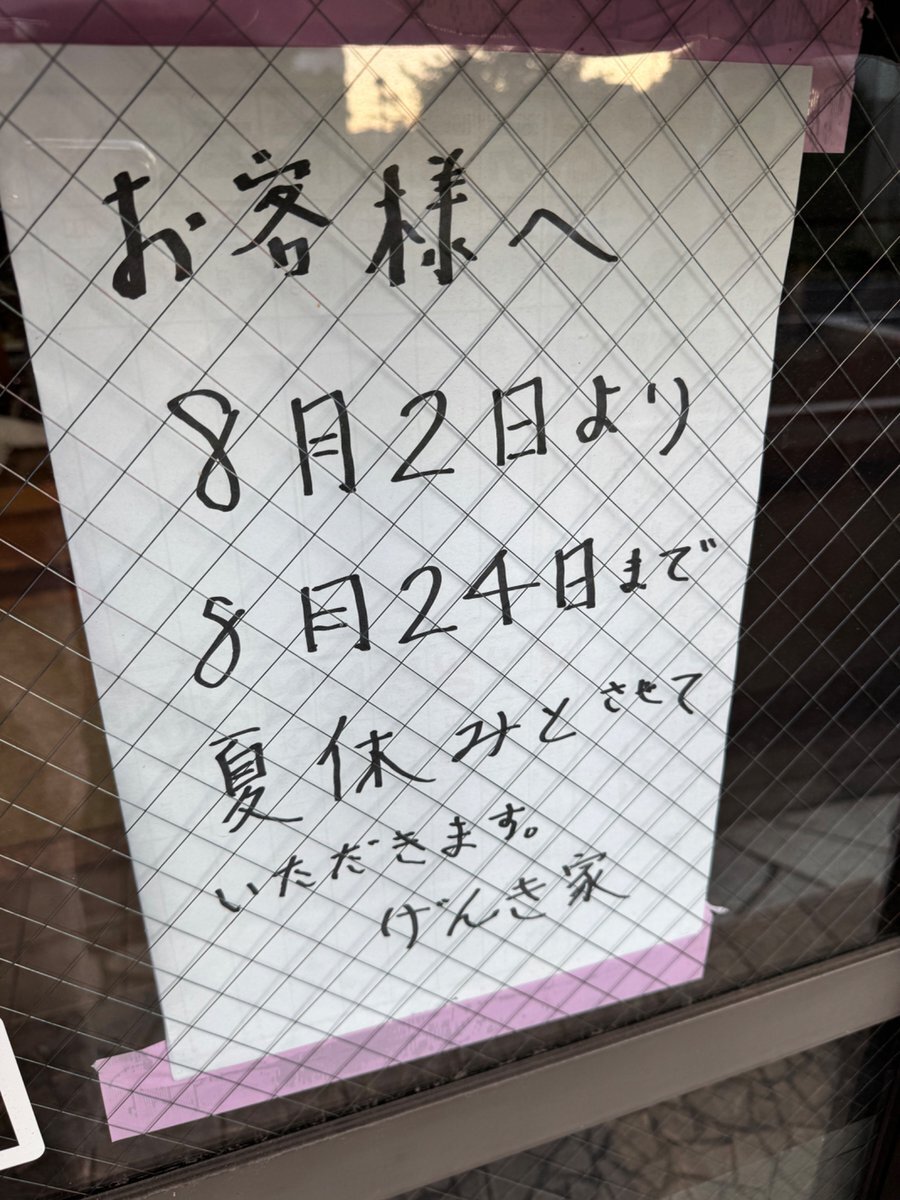 お客様へ
8月2日より
8月24日まで
夏休みとさせて
いただきます。
げんき家